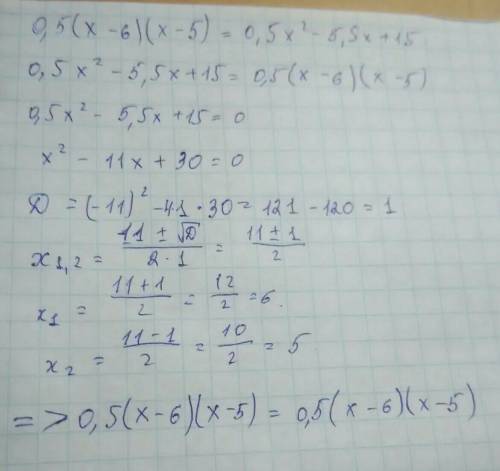 0,5(x - 6)(x - 5) = 0,5x² - 5,5x + 15
0,5x² - 5,5x + 15 = 0,5(x - 6)(x - 5)
0,5x² - 5,5x + 15 = 0
x² - 11x + 30 = 0
D = (-11)² - 4·1·30 = 121 - 120 = 1
x₁,₂ = (11 ± √D)/(2·1) = (11 ± 1)/2
x₁ = (11 + 1)/2 = 12/2 = 6.
x₂ = (11 - 1)/2 = 10/2 = 5
=> 0,5(x - 6)(x - 5) = 0,5(x - 6)(x - 5)